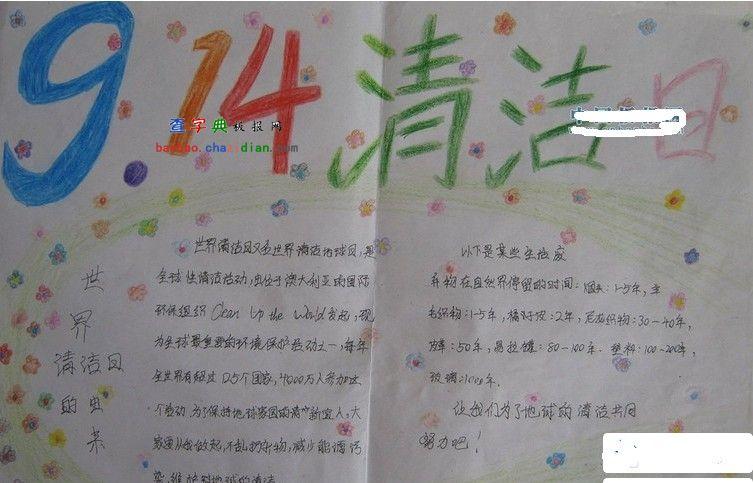 9.14清洁日
查字典板报网
世界清洁日的由来
世界清洁日又名世界清洁地球日,是
全球性清洁活动,由位于澳大利亚的国际
环保组织 Clean Up the World 发起,现
为全球最重要的环境保护活动之一,每年
全世界有超过125个国家,4000万人参加这
个活动.为了保持地球家园的清洁宜人,大
家要从我做起,不乱扔杂物,减少能源污
染,维护地球的清洁
以下是某些生活废
弃物在自然界停留的时间:烟头:1-5年,羊
毛织物:1-5年,橘子皮:2年,尼龙织物:30-40年,
皮革:50年,易拉罐:80-100年.塑料:100-200年,
玻璃:1000年.
让我们为了地球的清洁共同
努力吧!